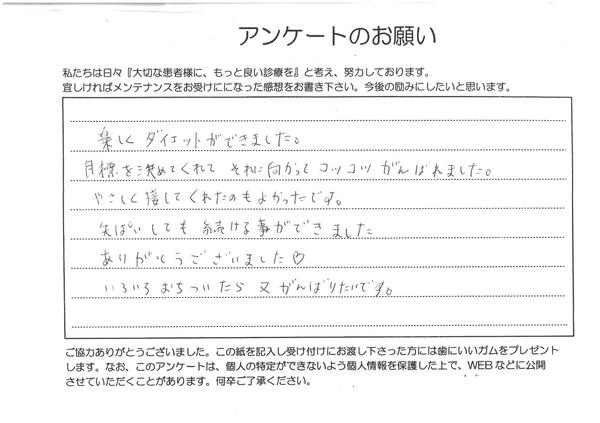 アンケートのお願い
私たちは日々『大切な患者様に、もっと良い診療を』と考え、努力しております。
宜しければメンテナンスをお受けにになった感想をお書き下さい。今後の励みにしたいと思います。
楽しくダイエットができました。
目標を決めてくれて それに向かってコツコツがんばれました。
やさしく接してくれたのもよかったです。
失ぱいしても続ける事ができました
ありがとうございました♡
いろいろおちついたら又がんばりたいです。
ご協力ありがとうございました。この紙を記入し受け付けにお渡し下さった方には歯にいいガムをプレゼント
します。なお、このアンケートは、個人の特定ができないよう個人情報を保護した上で、WEBなどに公開
させていただくことがあります。何卒ご了承ください。